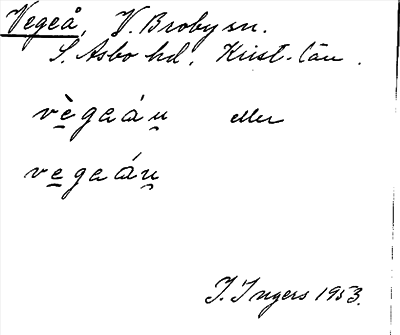 Vegeå, V. Broby sn.
S. Åsbo hd, Krist. län.
vègaán eller
vegaán
I. Ingers 1953.